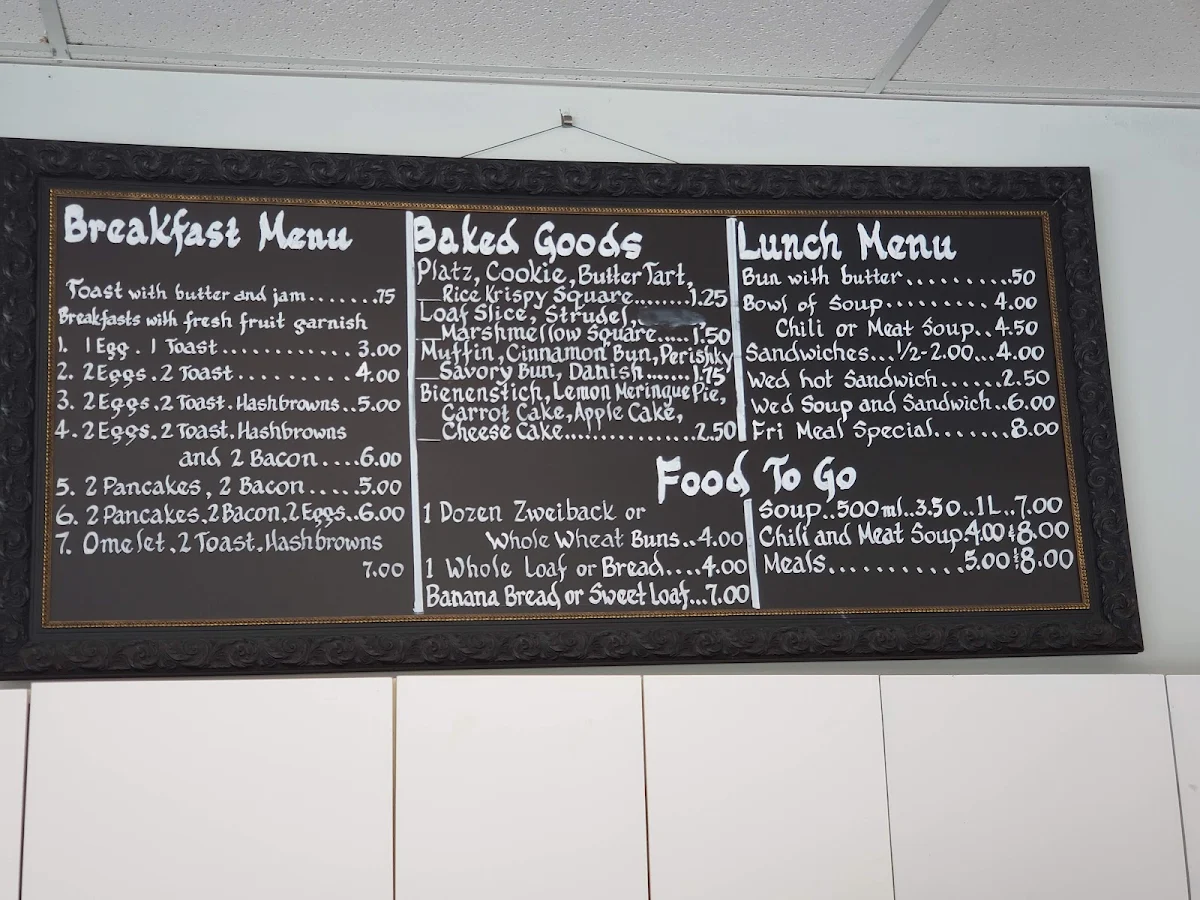 Breakfast Menu
Toast with butter and jam.......75
Breakfasts with fresh fruit garnish
1. 1 Egg . 1 Toast............3.00
2. 2 Eggs . 2 Toast..........4.00
3. 2 Eggs . 2 Toast. Hashbrowns..5.00
4. 2 Eggs . 2 Toast. Hashbrowns
and 2 Bacon....6.00
5. 2 Pancakes, 2 Bacon.....5.00
6. 2 Pancakes. 2 Bacon, 2 Eggs..6.00
7. Omelet . 2 Toast. Hashbrowns
7.00
Baked Goods
Platz, Cookie, Butter Tart,
Rice Krispy Square........1.25
Loaf Slice, Strudel,
Marshmellow Square.....1.50
Muffin, Cinnamon Bun, Perishky
Savory Bun, Danish.......1.75
Bienenstich, Lemon Meringue Pie,
Carrot Cake, Apple Cake,
Cheese Cake................2.50
Lunch Menu
Bun with butter...........50
Bowl of Soup..........4.00
Chili or Meat Soup..4.50
Sandwiches...1/2-2.00...4.00
Wed hot Sandwich......2.50
Wed Soup and Sandwich..6.00
Fri Meal Special.......8.00
Food To Go
1 Dozen Zweiback or
Whole Wheat Buns..4.00
1 Whole Loaf or Bread....4.00
Banana Bread or Sweet Loaf...7.00
Soup..500ml..3.50..1L..7.00
Chili and Meat Soup.4.00 & 8.00
Meals...........5.00 & 8.00